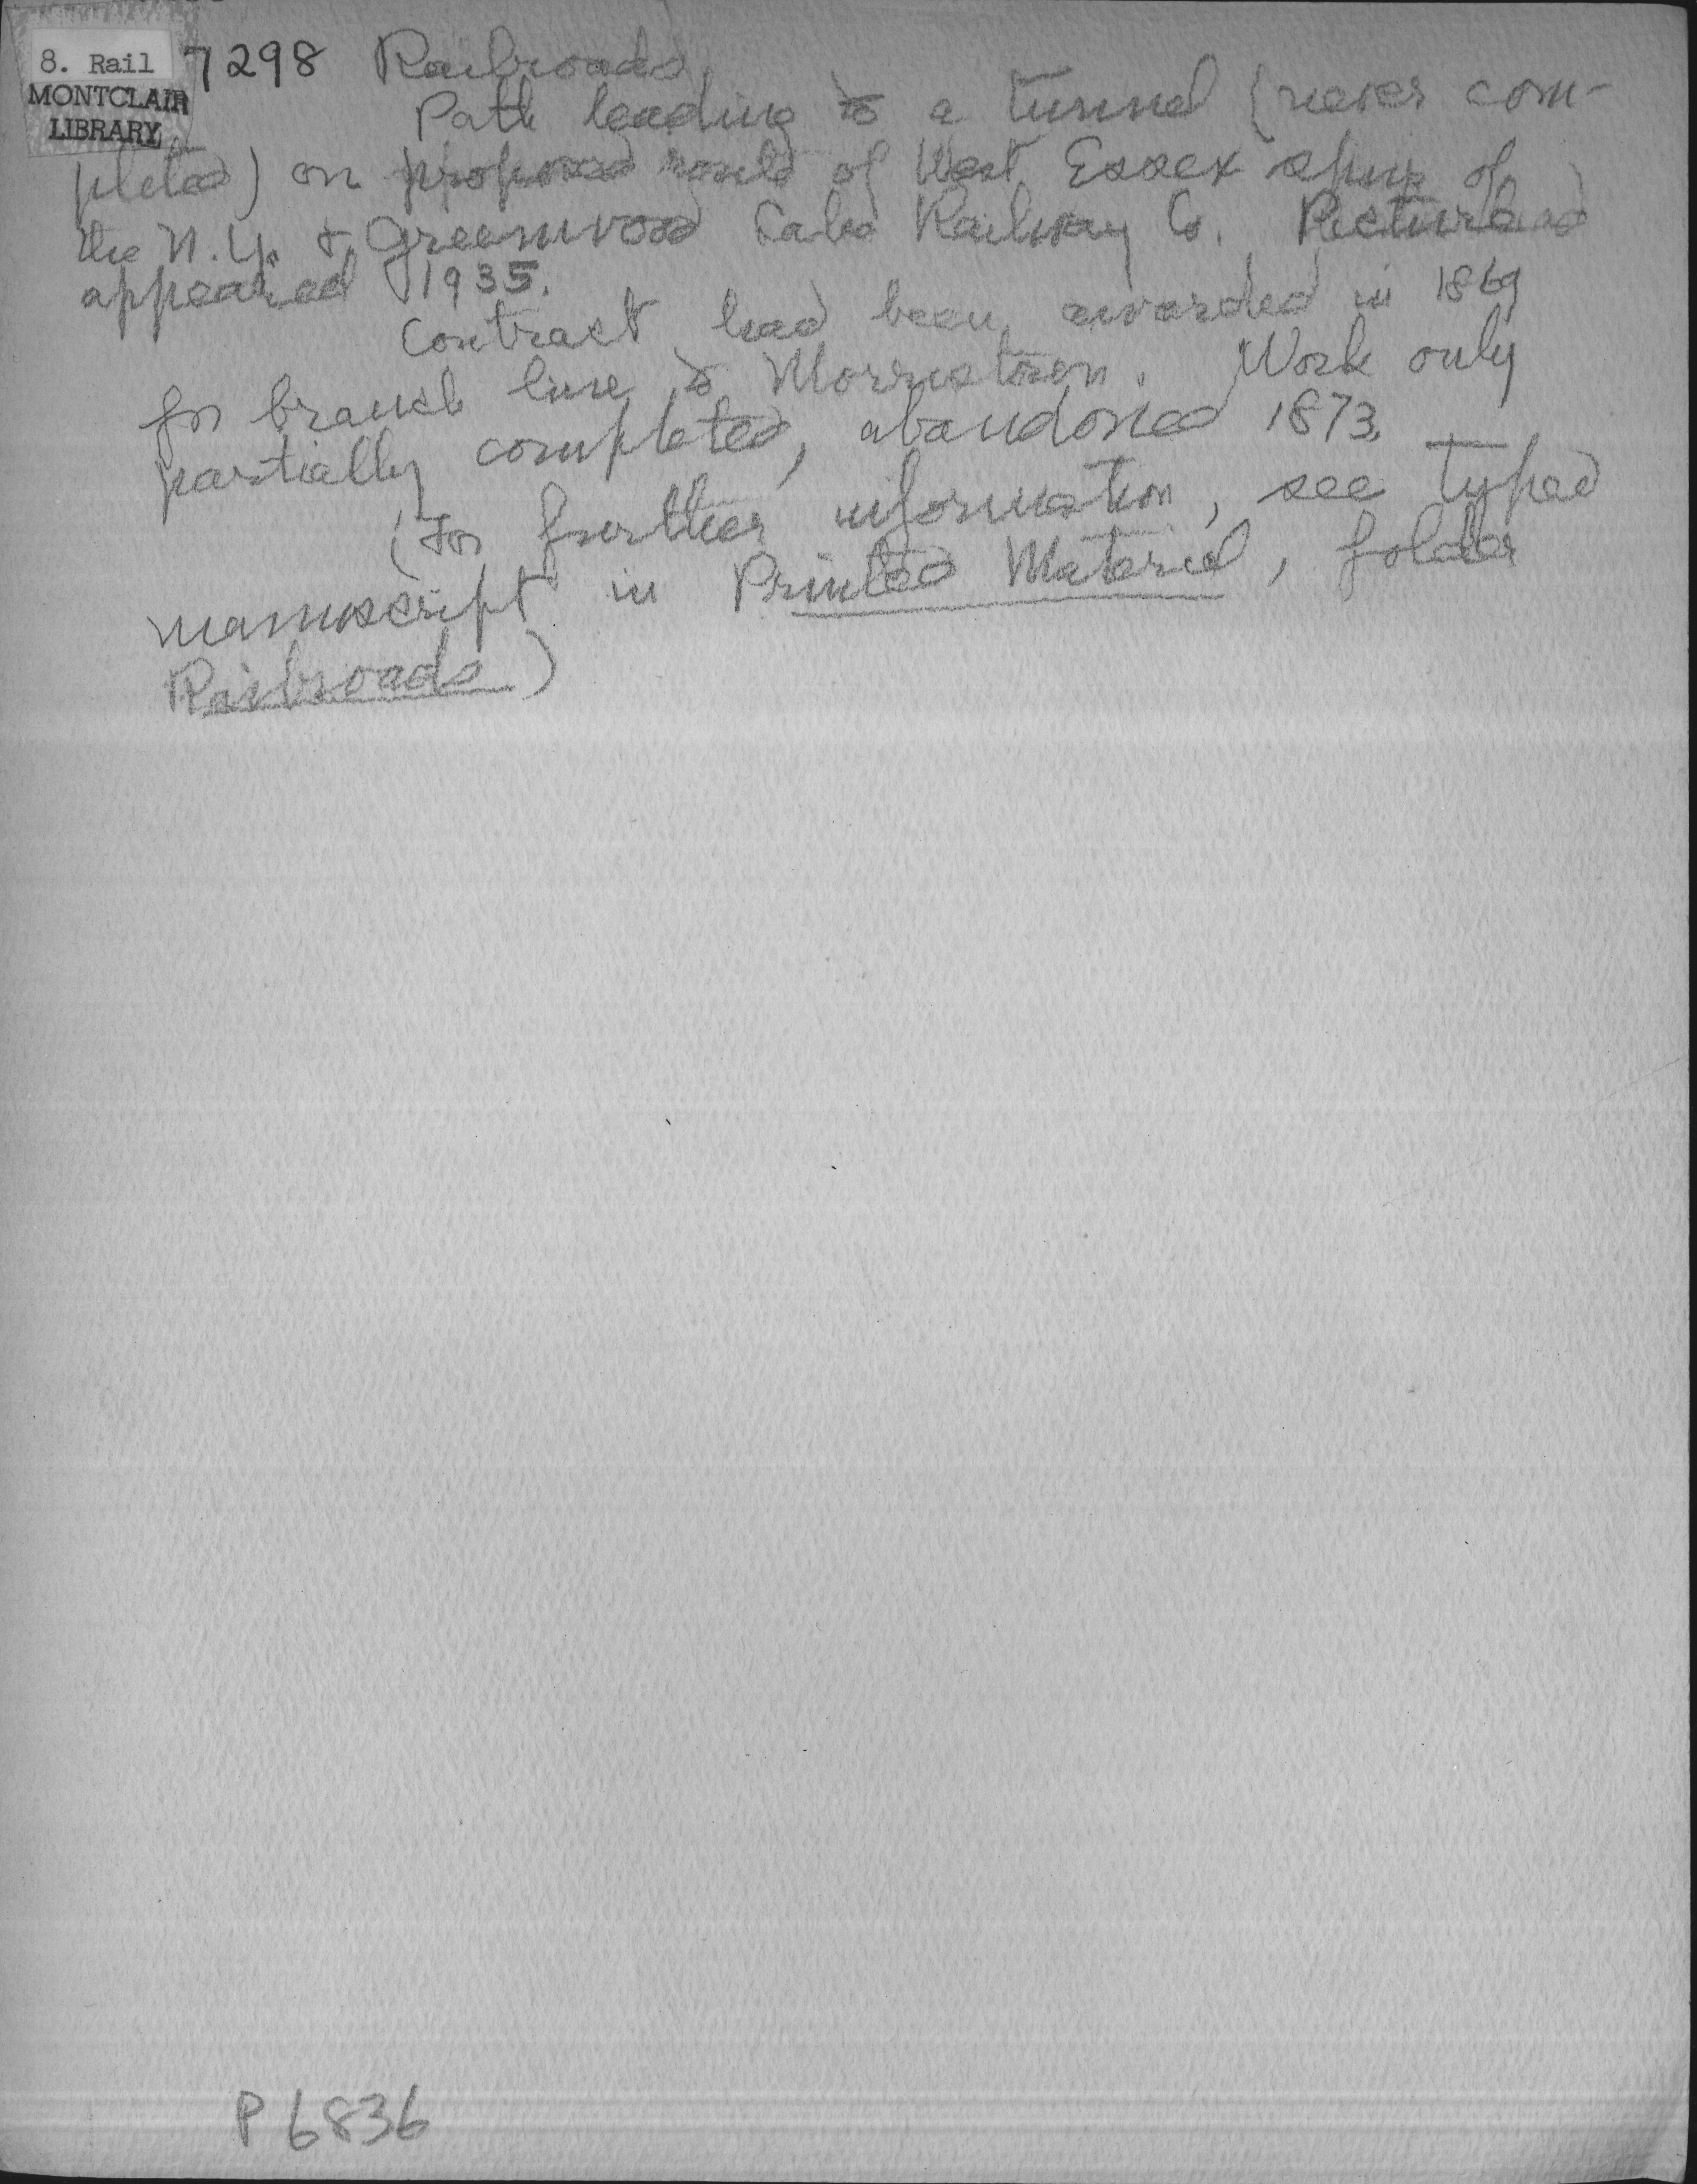 8. Rail
MONTCLAIR
LIBRARY
7298 Railroads
Path leading to a tunnel (never com-
pleted) on proposed route of West Essex spur of
the N.Y. & Greenwood Lake Railway Co. Picture as
appeared 1935.
Contract had been awarded in 1869
for branch line to Morristown. Work only
partially completed, abandoned 1873.
(For further information, see typed
manuscript in Printed Material, folder
Railroads)
P 6836